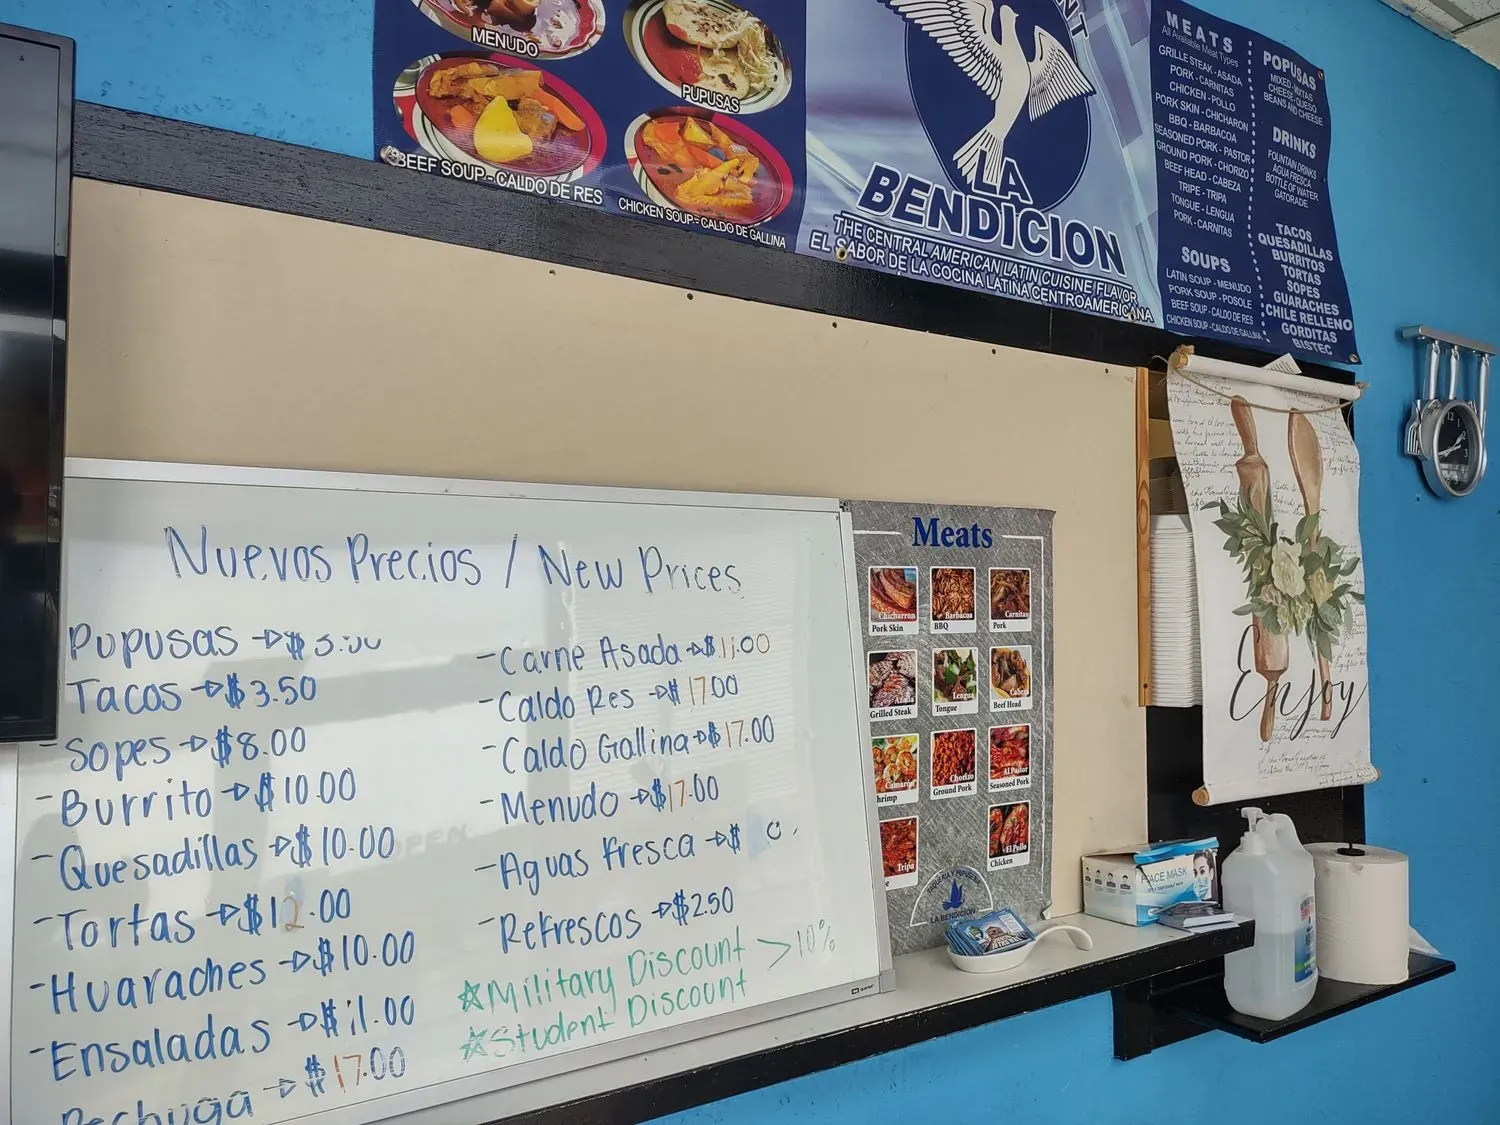 MENUDO
PUPUSAS
BEEF SOUP - CALDO DE RES
CHICKEN SOUP - CALDO DE GALLINA
LA
BENDICION
THE CENTRAL AMERICAN LATIN CUISINE FLAVOR
EL SABOR DE LA COCINA LATINA CENTROAMERICANA
MEATS
All Available Meat Types
GRILLE STEAK - ASADA
PORK - CARNITAS
CHICKEN - POLLO
PORK SKIN - CHICHARON
BBQ - BARBACOA
SEASONED PORK - PASTOR
GROUND PORK - CHORIZO
BEEF HEAD - CABEZA
TRIPE - TRIPA
TONGUE - LENGUA
PORK - CARNITAS
SOUPS
LATIN SOUP - MENUDO
PORK SOUP - POSOLE
BEEF SOUP - CALDO DE RES
CHICKEN SOUP - CALDO DE GALLINA
POPUSAS
MIXED - MIXTAS
CHEESE - QUESO
BEANS AND CHEESE
DRINKS
FOUNTAIN DRINKS
AGUA FRESCA
BOTTLE OF WATER
GATORADE
TACOS
QUESADILLAS
BURRITOS
TORTAS
SOPES
GUARACHES
CHILE RELLENO
GORDITAS
BISTEC
Nuevos Precios / New Prices
Pupusas → $3.50
Tacos → $3.50
- Sopes → $8.00
- Burrito → $10.00
- Quesadillas → $10.00
- Tortas → $12.00
- Huaraches → $10.00
- Ensaladas → $11.00
Pechuga → $17.00
- Carne Asada → $11.00
- Caldo Res → $17.00
- Caldo Gallina → $17.00
- Menudo → $17.00
- Aguas Fresca → $
- Refrescos → $2.50
☆ Military Discount > 10%
☆ Student Discount
Meats
Chicharron
Pork Skin
Barbacoa
BBQ
Carnitas
Pork
Asada
Grilled Steak
Lengua
Tongue
Cabeza
Beef Head
Camaron
hrimp
Chorizo
Ground Pork
Al Pastor
Seasoned Pork
Tripa
e
El Pollo
Chicken
LA BENDICION
FACE MASK
Enjoy
12